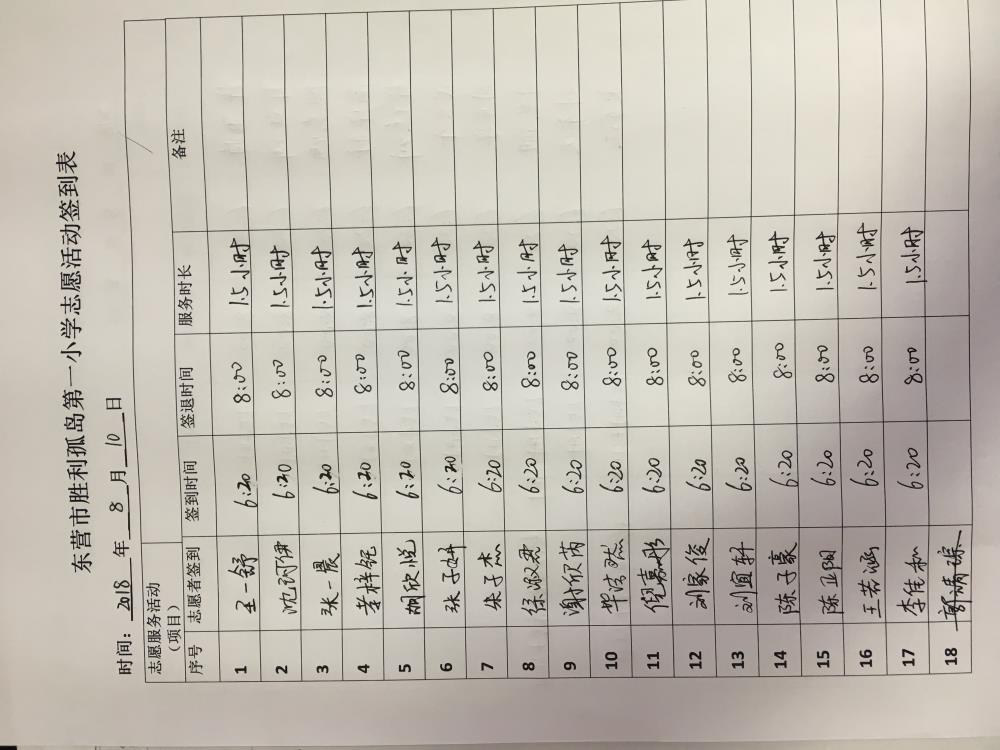 东营市胜利孤岛第一小学志愿活动签到表
时间：2018 年 8 月 10 日
志愿服务活动
（项目）
序号 志愿者签到 签到时间 签退时间 服务时长 备注
1 王一舒 6:20 8:00 1.5小时
2 沈诃伊 6:20 8:00 1.5小时
3 张一晨 6:20 8:00 1.5小时
4 李梓铭 6:20 8:00 1.5小时
5 胡欣悦 6:20 8:00 1.5小时
6 张子妍 6:20 8:00 1.5小时
7 朱子杰 6:20 8:00 1.5小时
8 徐淑雯 6:20 8:00 1.5小时
9 谢欣芮 6:20 8:00 1.5小时
10 毕浩然 6:20 8:00 1.5小时
11 倪嘉彤 6:20 8:00 1.5小时
12 刘家俊 6:20 8:00 1.5小时
13 刘宜轩 6:20 8:00 1.5小时
14 陈子豪 6:20 8:00 1.5小时
15 陈卫阳 6:20 8:00 1.5小时
16 王若涵 6:20 8:00 1.5小时
17 李佳和 6:20 8:00 1.5小时
18